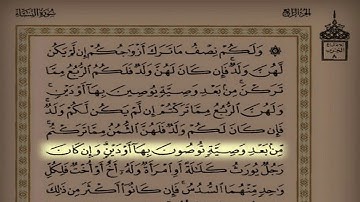 سورة النساء
الجزء الرابع
وَلَكُمْ نِصْفُ مَا تَرَكَ أَزْوَاجُكُمْ إِن لَّمْ يَكُن
لَّهُنَّ وَلَدٌ فَإِن كَانَ لَهُنَّ وَلَدٌ فَلَكُمُ الرُّبُعُ مِمَّا
تَرَكْنَ مِن بَعْدِ وَصِيَّةٍ يُوصِينَ بِهَا أَوْ دَيْنٍ
وَلَهُنَّ الرُّبُعُ مِمَّا تَرَكْتُمْ إِن لَّمْ يَكُن لَّكُمْ وَلَدٌ
فَإِن كَانَ لَكُمْ وَلَدٌ فَلَهُنَّ الثُّمُنُ مِمَّا تَرَكْتُم
مِّن بَعْدِ وَصِيَّةٍ تُوصُونَ بِهَا أَوْ دَيْنٍ وَإِن كَانَ
رَجُلٌ يُورَثُ كَلَالَةً أَوِ امْرَأَةٌ وَلَهُ أَخٌ أَوْ أُخْتٌ فَلِكُلِّ
وَاحِدٍ مِّنْهُمَا السُّدُسُ فَإِن كَانُوا أَكْثَرَ مِن ذَٰلِكَ